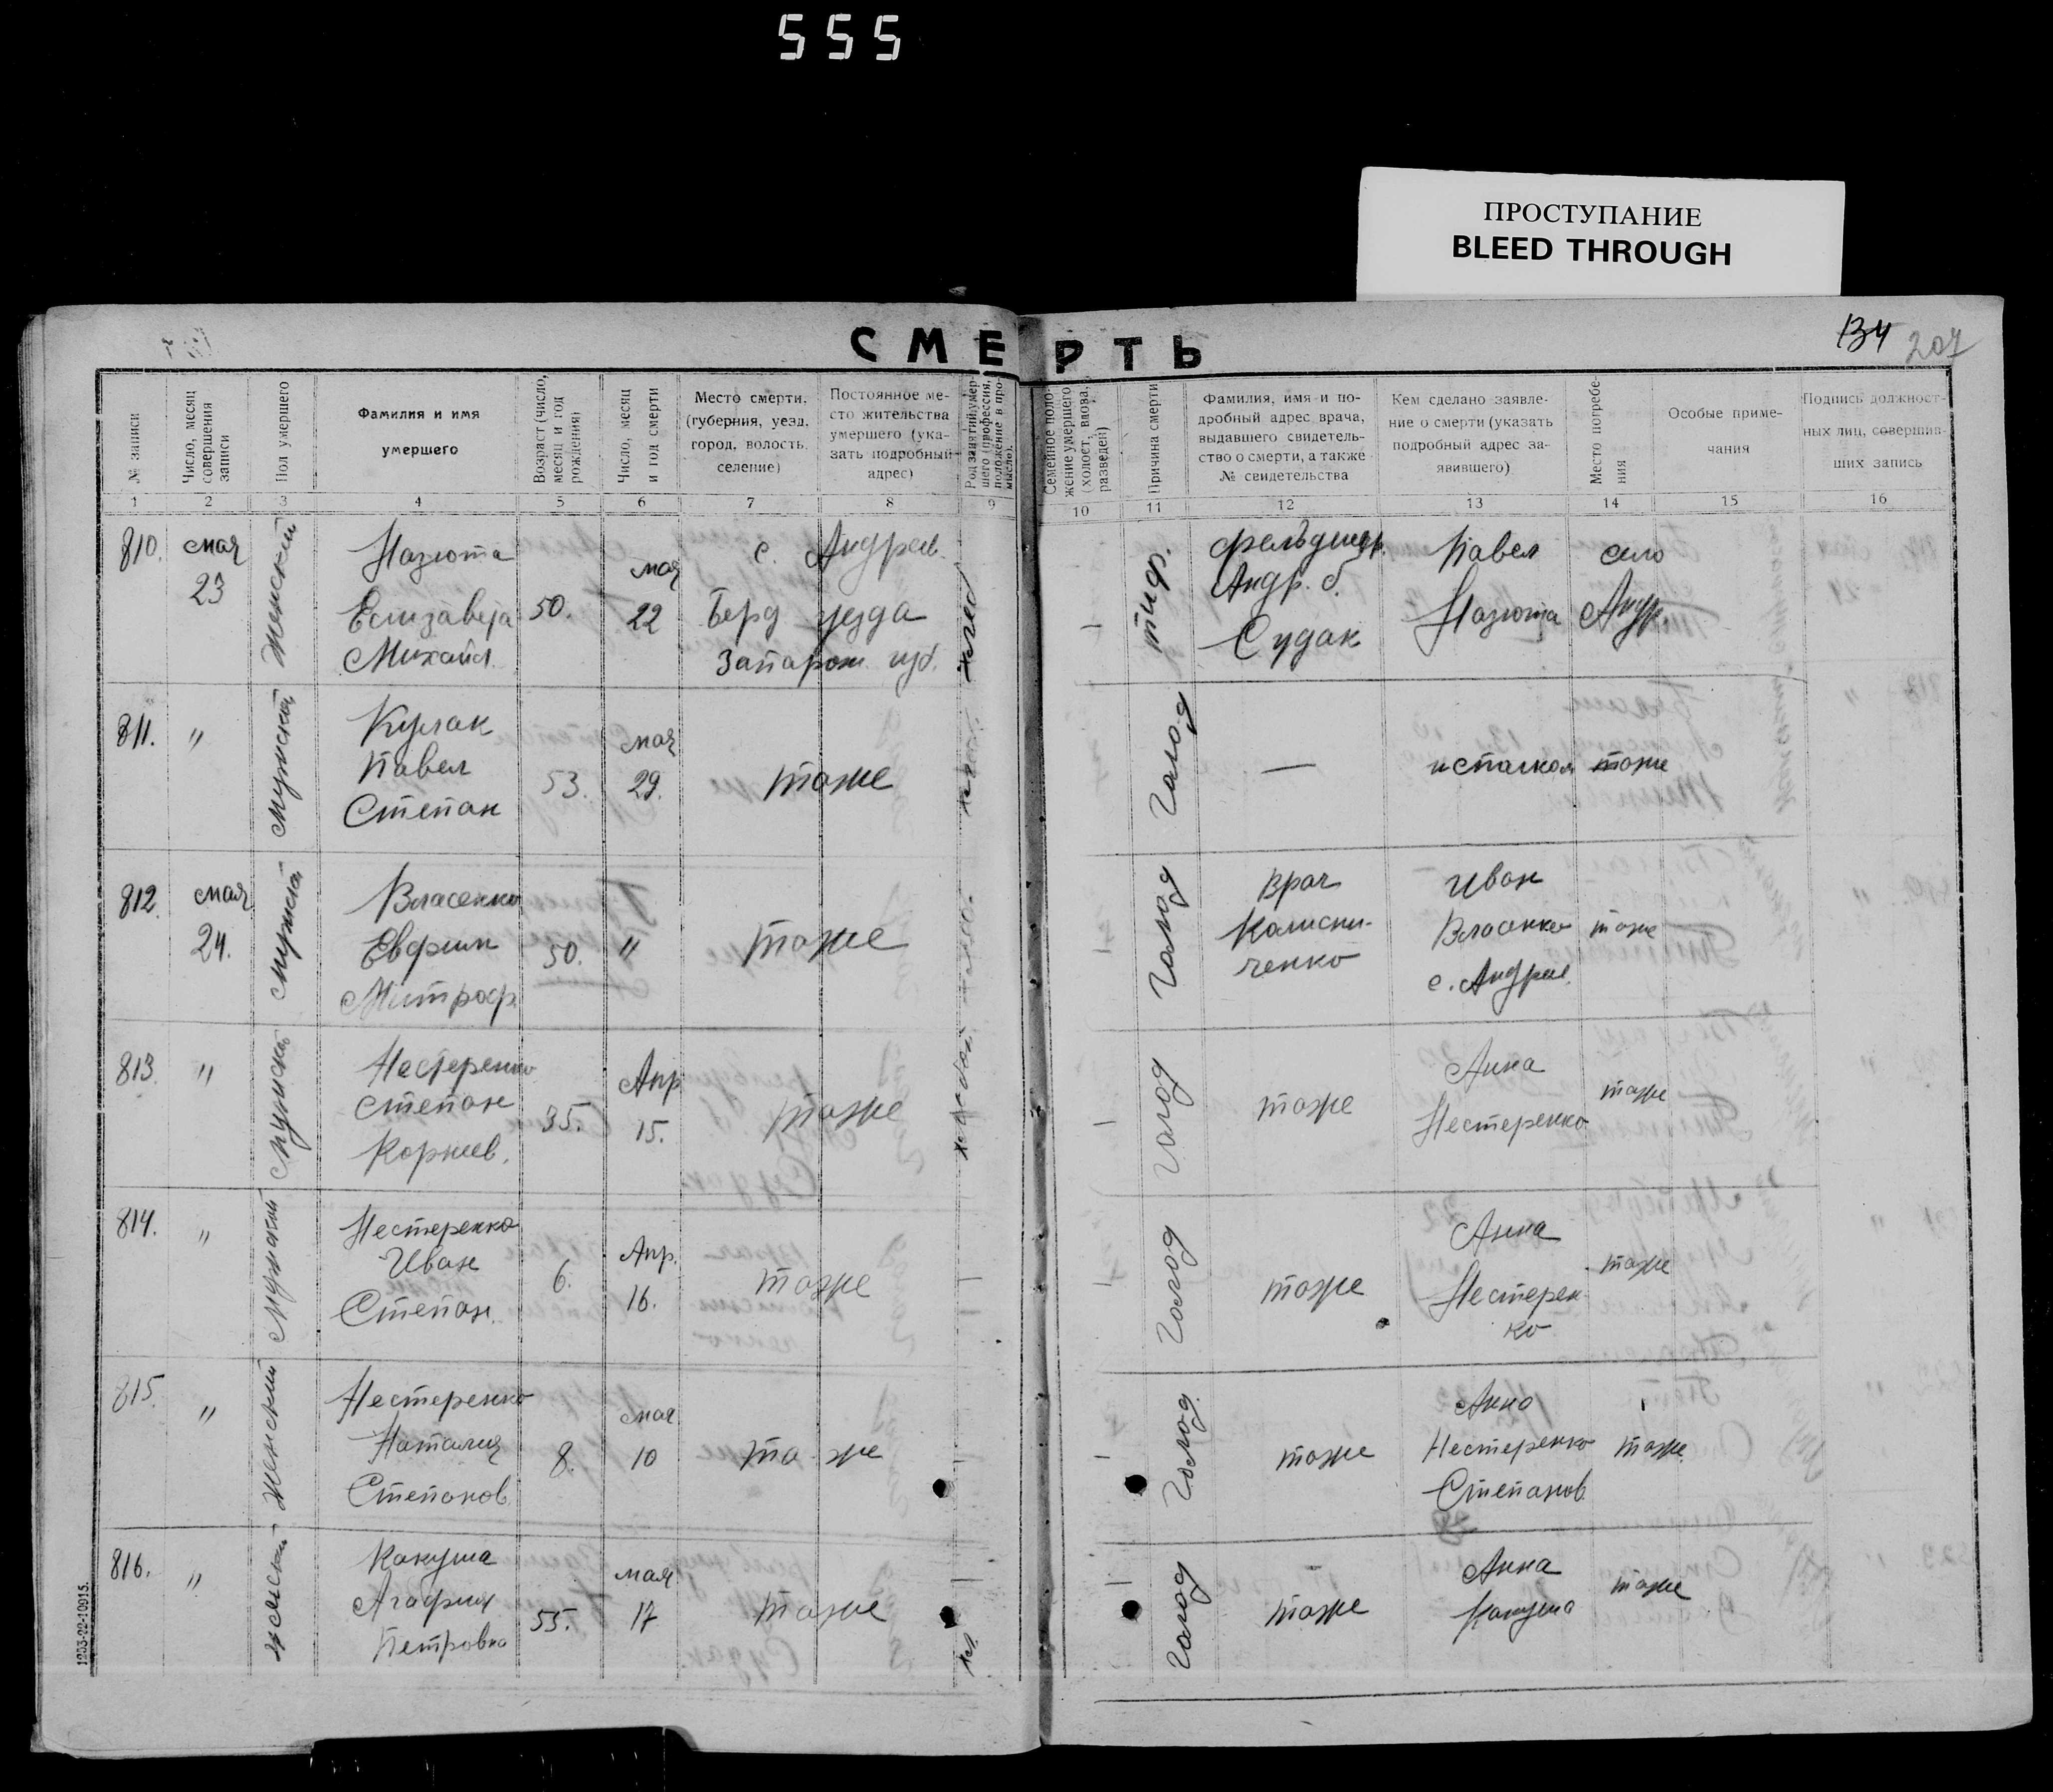 555
ПРОСТУПАНИЕ
BLEED THROUGH
СМЕРТЬ
134 207
№ записи
Число, месяц совершения записи
Пол умершего
Фамилия и имя умершего
Возраст (число, месяц и год рождения)
Число, месяц и год смерти
Место смерти. (губерния, уезд, город, волость, селение)
Постоянное место жительства умершего (указать подробный адрес)
Род занятий умершего (профессия, положение в промысле).
Семейное положение умершего (холост, вдова, разведен)
Причина смерти
Фамилия, имя и подробный адрес врача, выдавшего свидетельство о смерти, а также № свидетельства
Кем сделано заявление о смерти (указать подробный адрес заявившего)
Место погребения
Особые примечания
Подпись должностных лиц, совершивших запись
1 2 3 4 5 6 7 8 9 10 11 12 13 14 15 16
810. мая 23 Женский
Назюта
Елизавета
Михайл.
50. мая 22
с. Андреев.
Берд уезда
Запарож губ.
— тиф.
фельдшер.
Андр. б.
Судак
Павел
Назюта
село
Андр.
811. " Мужской
Кулак
Павел
Степан
53. мая 29. тоже
Галод — исполком тоже
812. мая 24. Мужской
Власенко
Евфим
Митроф.
50. " тоже
— Голод
Врач
Калисниченко
Иван
Власенко
с. Андрее.
тоже
813. " Мужской
Нестеренко
Степан
Корнев.
35. Апр 15. тоже
— Голод тоже
Анна
Нестеренко
тоже
814. " Мужской
Нестеренко
Иван
Степан.
6. Апр. 16. тоже
— Голод тоже
Анна
Нестерен
ко
тоже
815. " Женский
Нестеренко
Наталия
Степанов
8. мая 10 то же
— Голод. тоже
Анна
Нестеренко
Степанов.
тоже
816. " женский
Какуша
Агафия
Петровна
55. мая 17 тоже
Галод тоже
Анна
Какуша
тоже
1253-22-10915.